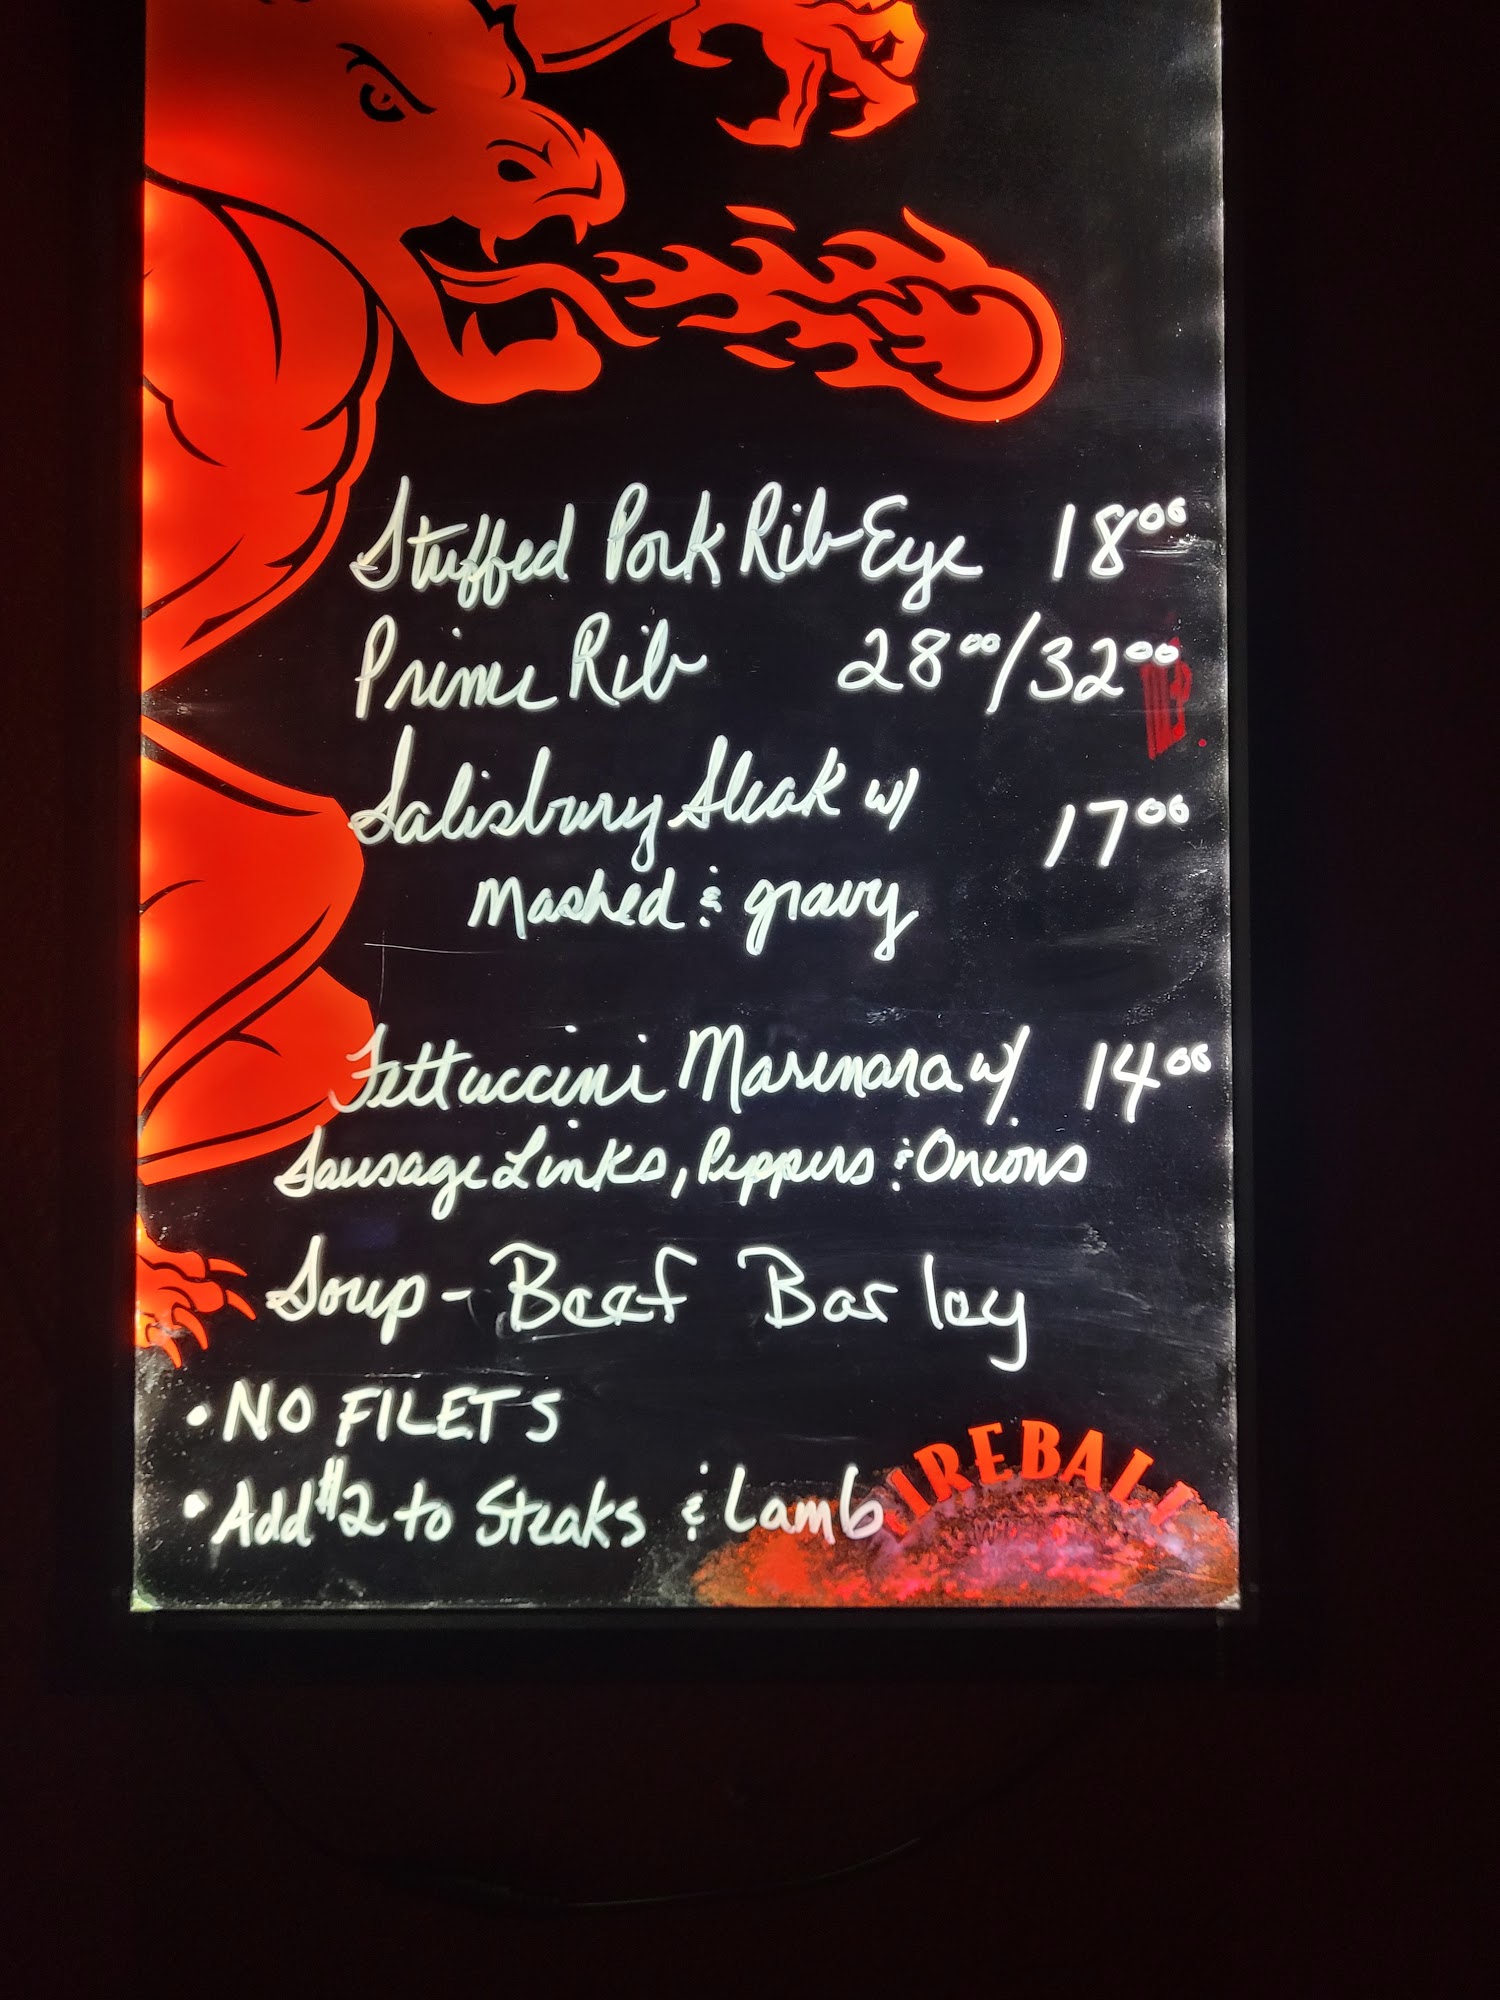 Stuffed Pork Rib Eye 18.00
Prime Rib 28.00/32.00
Salisbury Steak w/ 17.00
Mashed & gravy
Fettuccini Marinara w/ 14.00
Sausage Links, Peppers & Onions
Soup - Beef Barley
• NO FILETS
• Add $2 to Steaks & Lamb
FIREBALL